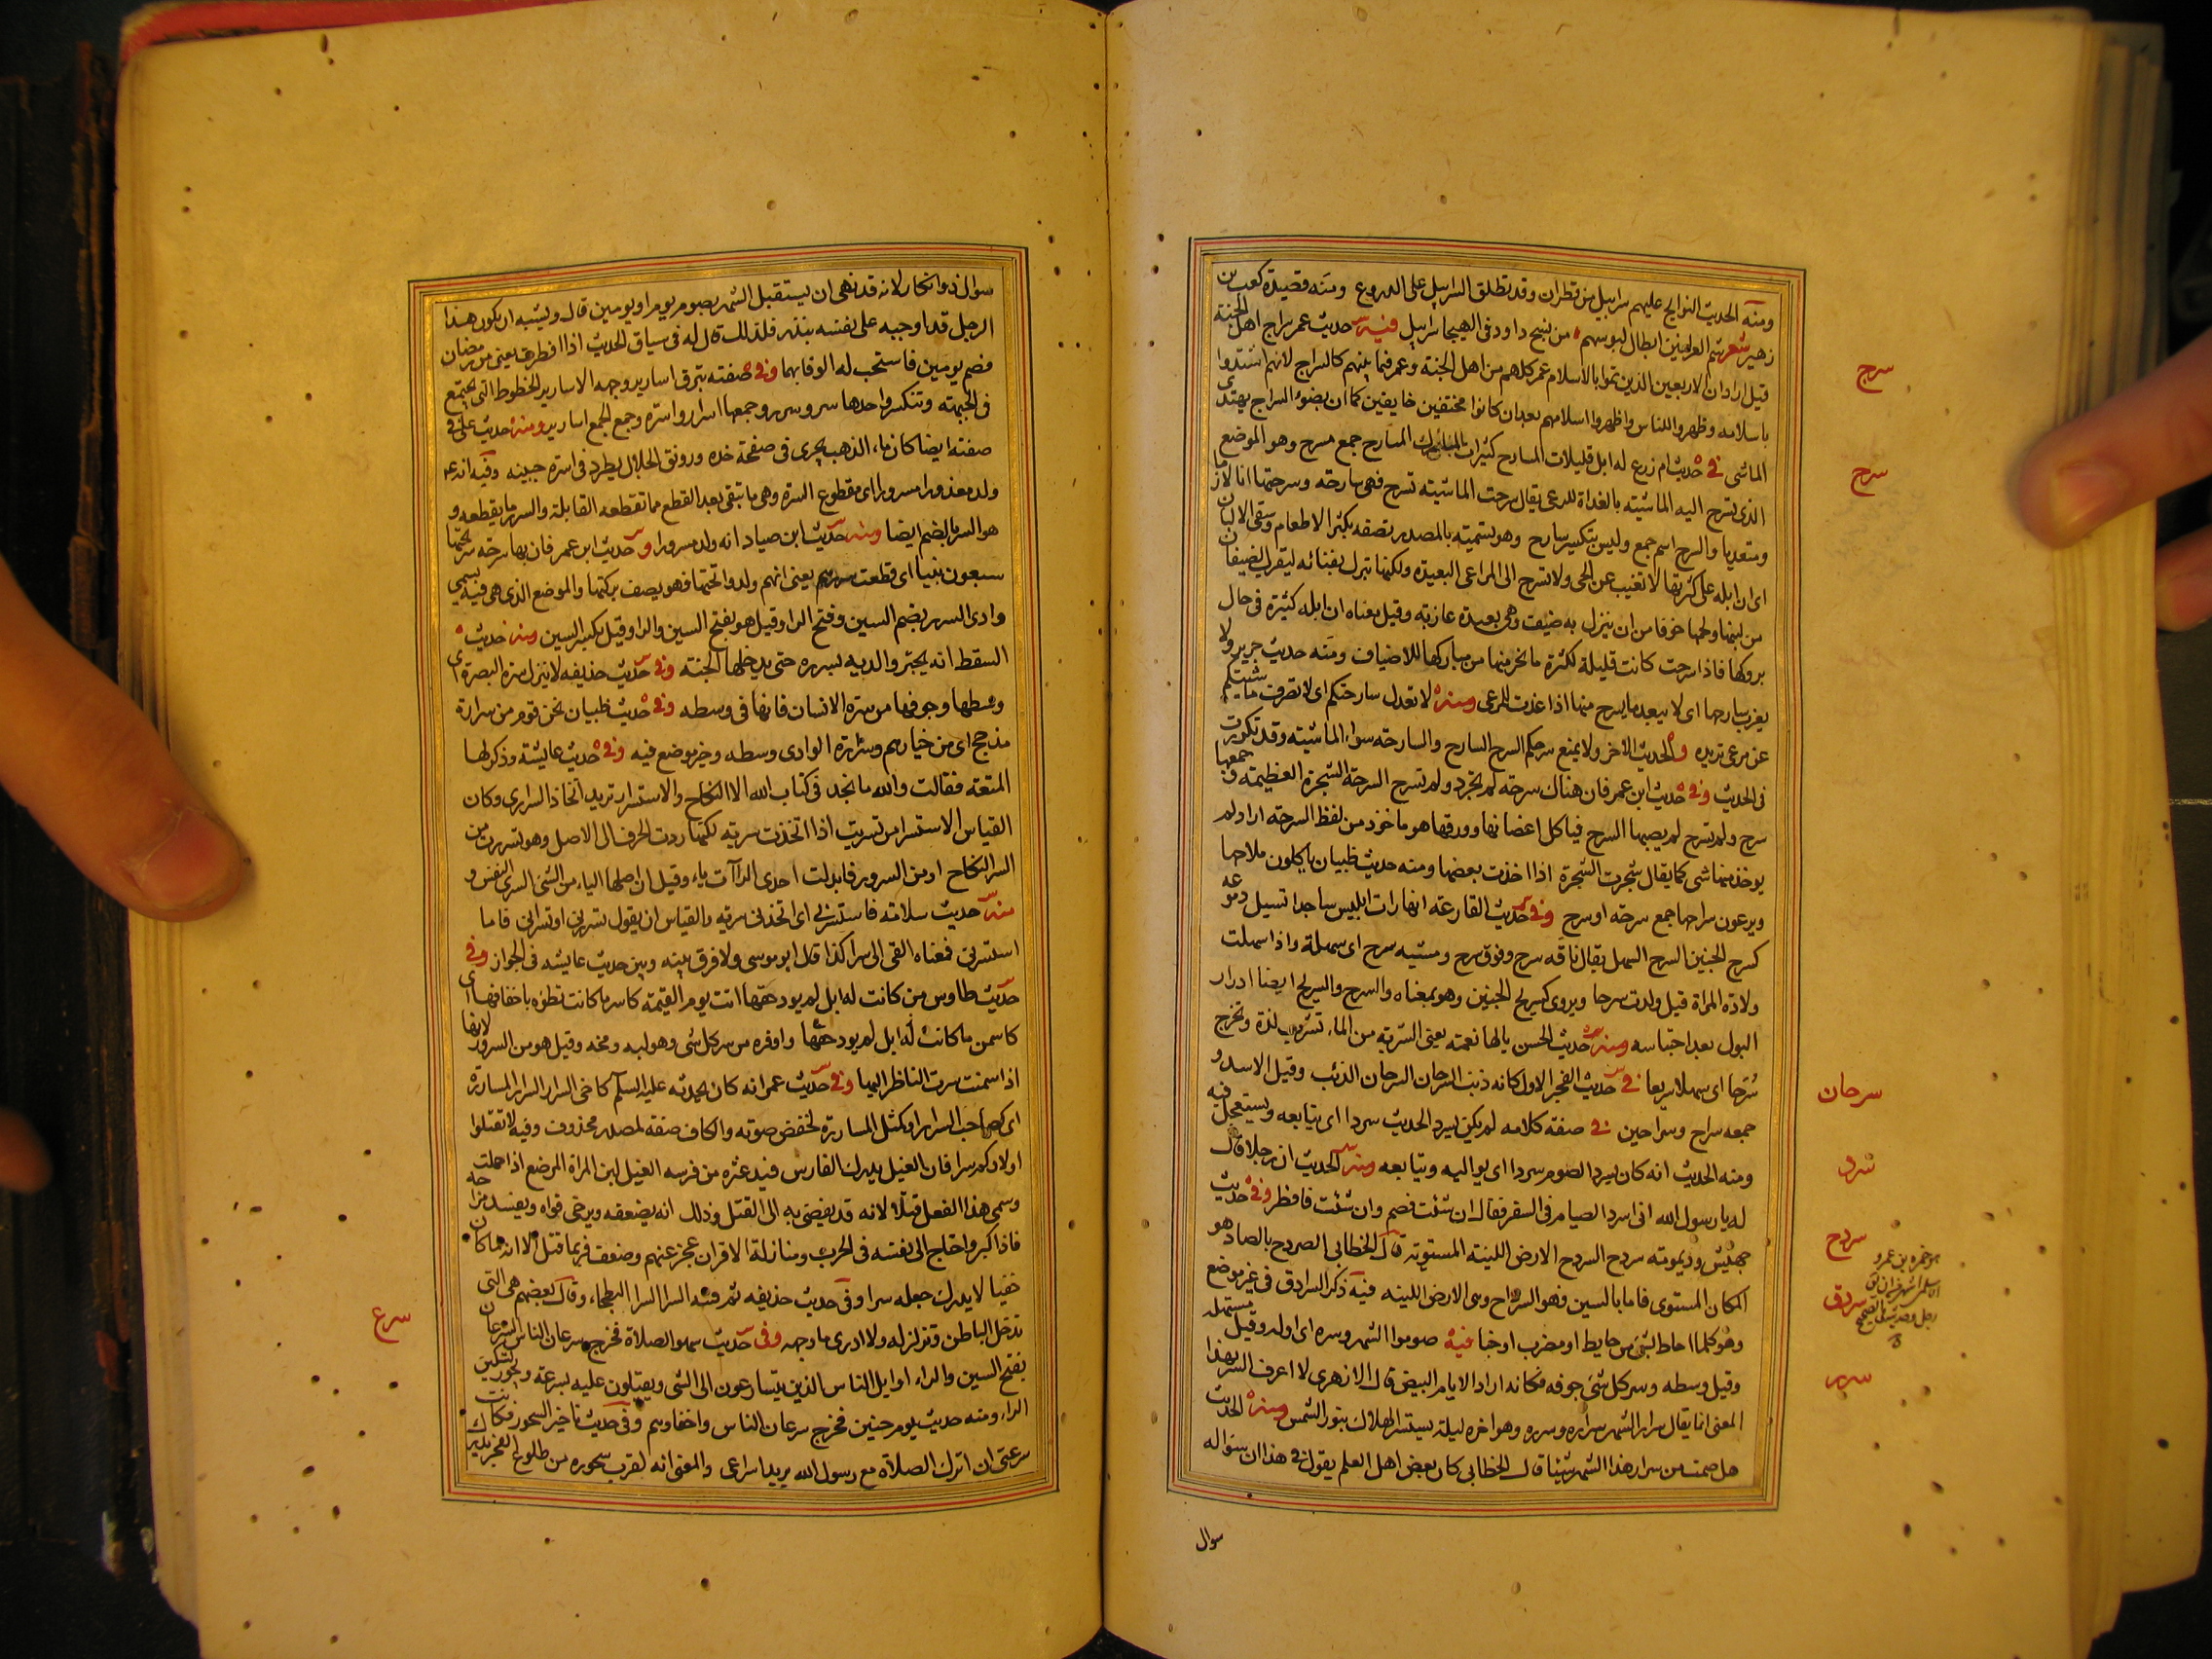 ومنه الحديث النوايح عليهم سرابيل من قطران وقد تطلق السرابيل على الدروع ومنه قصيدة كعب بن
زهير شعر شم العرانين ابطال لبوسهم من نسج داود في الهيجا سرابيل فيه حديث عمر سراج اهل الجنة
قيل اراد ان الاربعين الذين تموا بالاسلام عمر كلهم من اهل الجنة وعمر فيما بينهم كالسراج لانهم اشتدوا
باسلامه وظهروا للناس واظهروا اسلامهم بعد ان كانوا مختفين خايفين كما ان بضوء السراج يهتدى
الماشى في حديث ام زرع له ابل قليلات المسارح كثيرات المبارك المسارح جمع مسرح وهو الموضع
الذى تسرح اليه الماشية بالغداة للرعى يقال سرحت الماشية تسرح فهى سارحة وسرحتها انا لازما
ومتعديا والسرح اسم جمع وليس بتكسير سارح وهو تسميته بالمصدر تصفه بكثرة الاطعام وسقى الالبان
اى ان ابله على كثرتها لا تغيب عن الحى ولا تسرح الى المراعى البعيدة ولكنها تبرك بفنائه ليقرب الضيفان
من لبنها ولحمها خوفا من ان ينزل به ضيف وهى بعيدة عازبة وقيل معناه ان ابله كثيرة في حال
بروكها فاذا سرحت كانت قليلة لكثرة ما نحر منها من مباركها للاضياف ومنه حديث جرير ولا
يعزب سارحها اى لا يبعد ما يسرح منها اذا غدت للمرعى ومنه لا تعدل سارحتكم اى لا تصرف ماشيتكم
عن مرعى تريده والحديث الاخر ولا يمنع سرحكم السرح السارح والسارحة سواء الماشية وقد تكررت
في الحديث وفى حديث ابن عمر فان هناك سرحة لم تجرد ولم تسرح السرحة الشجرة العظيمة وجمعها
سرح ولم تسرح لم يصبها السرح فياكل اغصانها وورقها هو ماخوذ من لفظ السرحة اراد لم
يوخذ منها شى كما يقال شجرت الشجرة اذا اخذت بعضها ومنه حديث ظبيان ياكلون ملاحها
ويرعون سراحها جمع سرحة او سرح وفى حديث القارعة انها رات ابليس ساجدا تسيل دموعه
كسرح الجنين السرح السهل يقال ناقة سرح ونوق سرح ومشية سرح اى سهلة واذا سهلت
ولادة المراة قيل ولدت سرحا ويروى كسريح الجنين وهو بمعناه والسرح والسريح ايضا ادرار
البول بعد احتباسه ومنه حديث الحسن يا لها نعمة يعنى الشربة من الماء تشرب لذة وتخرج
سرحا اى سهلا سريعا في حديث الفجر الاول كانه ذنب السرحان السرحان الذئب وقيل الاسد و
جمعه سراح وسراحين في صفة كلامه لم يكن يسرد الحديث سردا اى يتابعه ويستعجل فيه
ومنه الحديث انه كان يسرد الصوم سردا اى يواليه ويتابعه ومنه الحديث ان رجلا قال
له يا رسول الله انى اسرد الصيام في السفر فقال ان شئت فصم وان شئت فافطر وفى حديث
جهيش وديمومة سردح السردح الارض اللينة المستوية قال الخطابى الصردح بالصاد هو
المكان المستوى فاما بالسين فهو السرداح وهى الارض اللينة فيه ذكر السرادق في غير موضع
وهو كلما احاط بشى من حايط او مضرب او خبا فيه صوموا الشهر وسره اى اوله وقيل مستهله
وقيل وسطه وسر كل شى جوفه فكانه اراد الايام البيض قال الازهرى لا اعرف السر بهذا
المعنى انما يقال سرار الشهر سراره وسرره وهو اخر ليلة يستسر الهلال بنور الشمس ومنه الحديث
هل صمت من سرار هذا الشهر شيئا قال الخطابى كان بعض اهل العلم يقول في هذا ان سواله
سوال
سرج
سرح
سرحان
سرد
سردح
سردق
سرر
سوال زجر وانكار لانه قد نهى ان يستقبل الشهر بصوم يوم او يومين قال ويشبه ان يكون هذا
الرجل قد اوجبه على نفسه بنذر فلذلك قال له في سياق الحديث اذا افطرت يعنى من رمضان
فصم يومين فاستحب له الوفا بهما وفى صفته تبرق اسارير وجهه الاسارير الخطوط التى تجتمع
في الجبهة وتتكسر واحدها سر وسرر وجمعها اسرار واسرة وجمع الجمع اسارير ومنه حديث على في
صفته ايضا كان ماء الذهب يجرى في صفحة خده ورونق الجلال يطرد في اسرة جبينه وفيه انه
ولد معذورا مسرورا اى مقطوع السرة وهى ما تبقى بعد القطع مما تقطعه القابلة والسرر ما يقطعه و
هو السر بالضم ايضا ومنه حديث ابن صياد انه ولد مسرورا و حديث ابن عمر فان بها سرحة سر تحتها
سبعون نبيا اى قطعت سررهم يعنى انهم ولدوا تحتها فهو يصف بركتها والموضع الذى هى فيه يسمى
وادى السرر بضم السين وفتح الرا وقيل هو بفتح السين والرا وقيل بكسر السين ومنه حديث
السقط انه يجتر والديه بسرره حتى يدخلها الجنة وفى حديث حذيفه لا تنزل سرة البصرة اى
وسطها وجوفها من سرة الانسان فانها في وسطه وفى حديث ظبيان نحن قوم من سرارة
مذحج اى من خيارهم وسرارة الوادى وسطه وخير موضع فيه وفى حديث عايشة وذكر لها
المتعة فقالت والله ما نجد في كتاب الله الا النكاح والاستسرار تريد اتخاذ السرارى وكان
القياس الاستسرا من تسريت اذا اتخذت سرية لكنها ردت الحرف الى الاصل وهو تسررت من
السر النكاح او من السرور فابدلت احدى الراآت ياء وقيل ان اصلها الياء من الشى السرى النفيس و
منه حديث سلامة فاستسرنى اى اتخذنى سرية والقياس ان يقول تسررنى او تسرانى فاما
استسرنى فمعناه القى الى سرا كذا قال ابو موسى ولا فرق بينه وبين حديث عايشه في الجواز وفى
حديث طاوس من كانت له ابل لم يود حقها اتت يوم القيمة كاسر ما كانت تطؤه باخفافها اى
كاسمن ما كانت له ابل لم يود حقها واوفره من سر كل شى وهو لبه ومخه وقيل هو من السرور لانها
اذا سمنت سرت الناظر اليها وفى حديث عمر انه كان يحدثه عليه السلم كاخى السرار السرار المسارة
اى كصاحب السرار او كمثل المسارة لخفض صوته والكاف صفة لمصدر محذوف وفيه لا تقتلوا
اولادكم سرا فان الغيل يدرك الفارس فيدعثره من فرسه الغيل لبن المراة المرضع اذا حملت
وسمى هذا الفعل قتلا لانه قد يفضى به الى القتل وذلك انه يضعفه ويرخى قواه ويفسد مزاجه
فاذا كبر واحتاج الى نفسه في الحرب ومنازلة الاقران عجز عنهم وضعف فربما قتل الا انه لما كان
خفيا لا يدرك جعله سرا وفى حديث حذيفه ثم فتنة السرا السرا البطحاء وقال بعضهم هى التى
تدخل الباطن وتزلزله ولا ادرى ما وجهه وفى حديث سهو الصلاة فخرج سرعان الناس السرعان
بفتح السين والراء اوايل الناس الذين يتسارعون الى الشى ويقبلون عليه بسرعة ويجوز تسكين
الراء ومنه حديث يوم حنين فخرج سرعان الناس واخفاوهم وفى حديث تاخير السحور فكانت
سرعتى ان ادرك الصلاة مع رسول الله يريد اسراعى والمعنى انه لقرب سحوره من طلوع الفجر يدرك
سرع